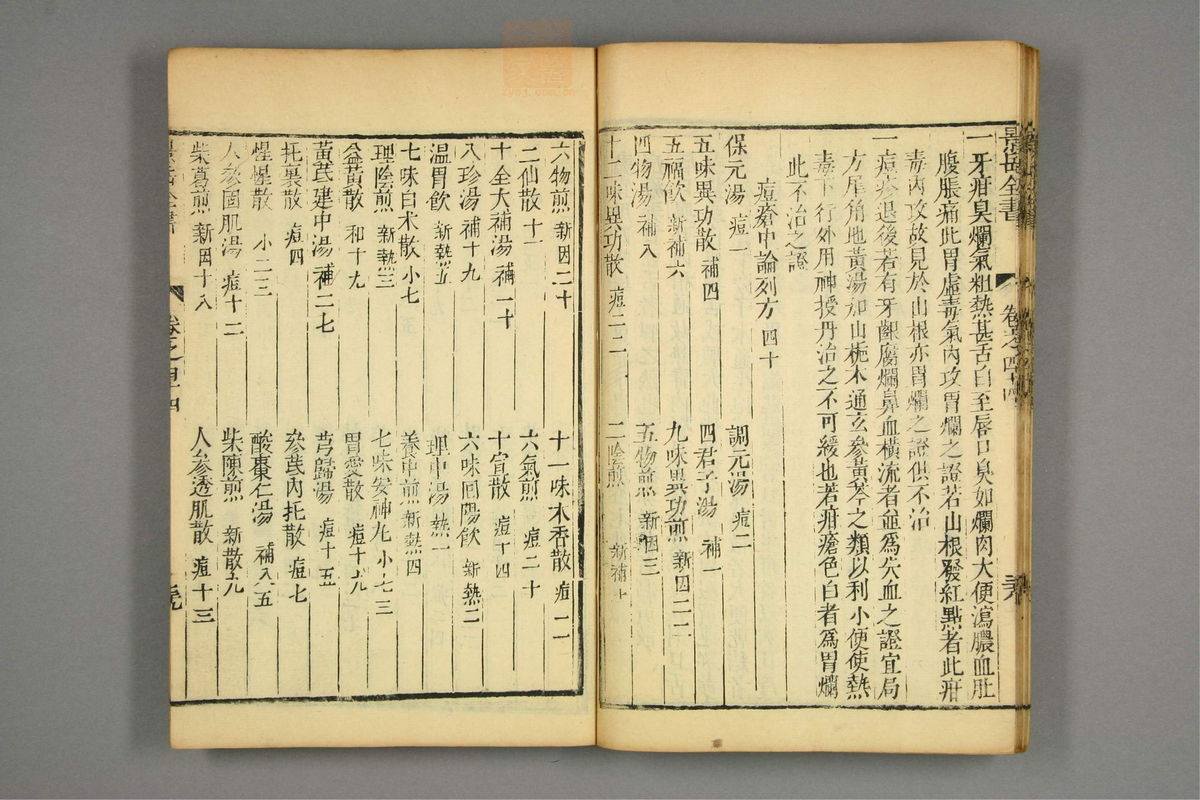 景岳全書
卷之四十四
一牙疳臭爛氣粗熱甚舌白至唇口臭如爛肉大便瀉膿血肚
腹脹痛此胃虛毒氣內攻胃爛之證若山根發紅點者此疳
毒內攻故見於山根亦胃爛之證俱不治
一痘疹退後若有牙齦腐爛鼻血橫流者並爲失血之證宜局
方犀角地黃湯加山梔木通玄參黃芩之類以利小便使熱
毒下行外用神授丹治之不可緩也若疳瘡色白者爲胃爛
此不治之證
痘瘡中論列方 四十
保元湯 痘一
調元湯 痘二
五味異功散 補四
四君子湯 補一
五福飲 新補六
九味異功煎 新因二二
四物湯 補八
五物煎 新因三
十二味異功散 痘二二
二陰煎 新補十
六物煎 新因二十
十一味木香散 痘二一
二仙散 十一
六氣煎 痘二十
十全大補湯 補二十
十宣散 痘十四
八珍湯 補十九
六味回陽飲 新熱二
温胃飲 新熱五
理中湯 熱一
七味白术散 小七
養中煎 新熱四
理陰煎 新熱三
七味安神丸 小七三
益黃散 和十九
胃愛散 痘十九
黃芪建中湯 補二七
芎歸湯 痘十五
托裏散 痘四
參芪內托散 痘七
惺惺散 小二三
酸棗仁湯 補八五
人參固肌湯 痘十二
柴陳煎 新散九
柴葛煎 新因十八
人參透肌散 痘十三
景岳全書
卷之四十四